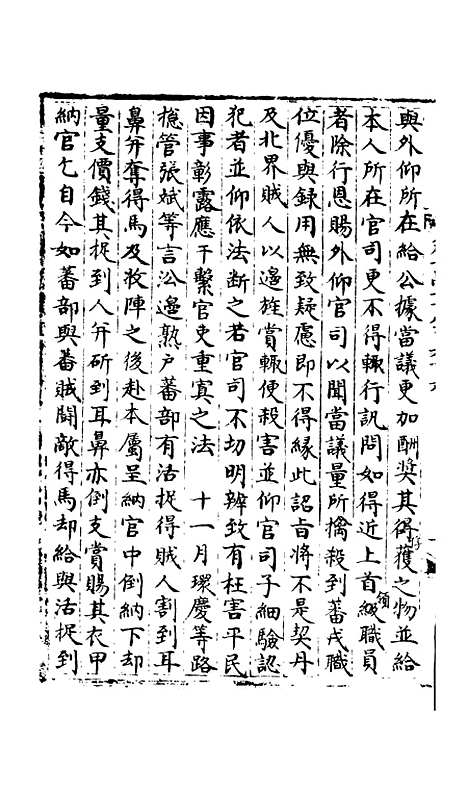 與外仰所在給公據當議更加酬獎其得獲之物並給
本人所在官司更不得輙行訊問如得近上首級職員
領
者除行恩賜外仰官司以聞當議量所擒殺到蕃戎職
位優與録用無致疑慮即不得緣此詔旨將不是契丹
及北界賊人以邊旌賞輙便殺害並仰官司子細驗認
犯者並仰依法斷之若官司不切明辨致有枉害平民
因事彰露應干繫官吏重寘之法　十一月環慶等路
捴管張斌等言沿邉熟户蕃部有活捉得賊人割到耳
鼻并奪得馬及收陣之後赴本屬呈納官中倒納下却
量支價錢其捉到人并斫到耳鼻亦倒支賞賜其衣甲
納官乞自今如蕃部與蕃賊鬪敵得馬却給與活捉到